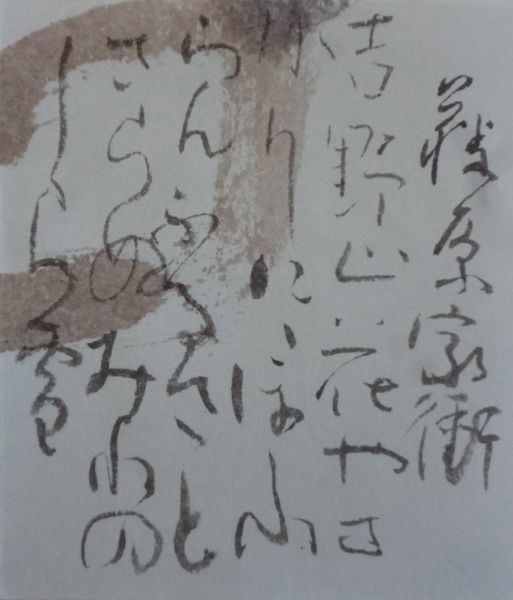 藤原家衡
吉野山花やさ
かりにゝほふ
らんふるさと
さらぬみねの
しら雪